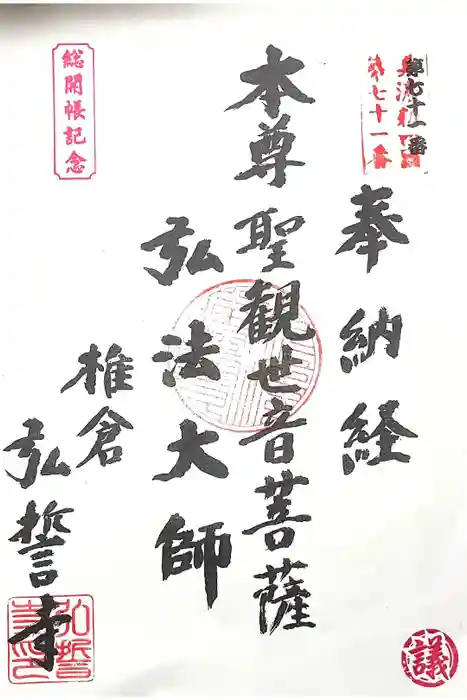 第七十一番
第七十一番
奉納経
本尊聖観世音菩薩
弘法大師
椎倉
弘誓寺
総開帳記念
議
弘誓